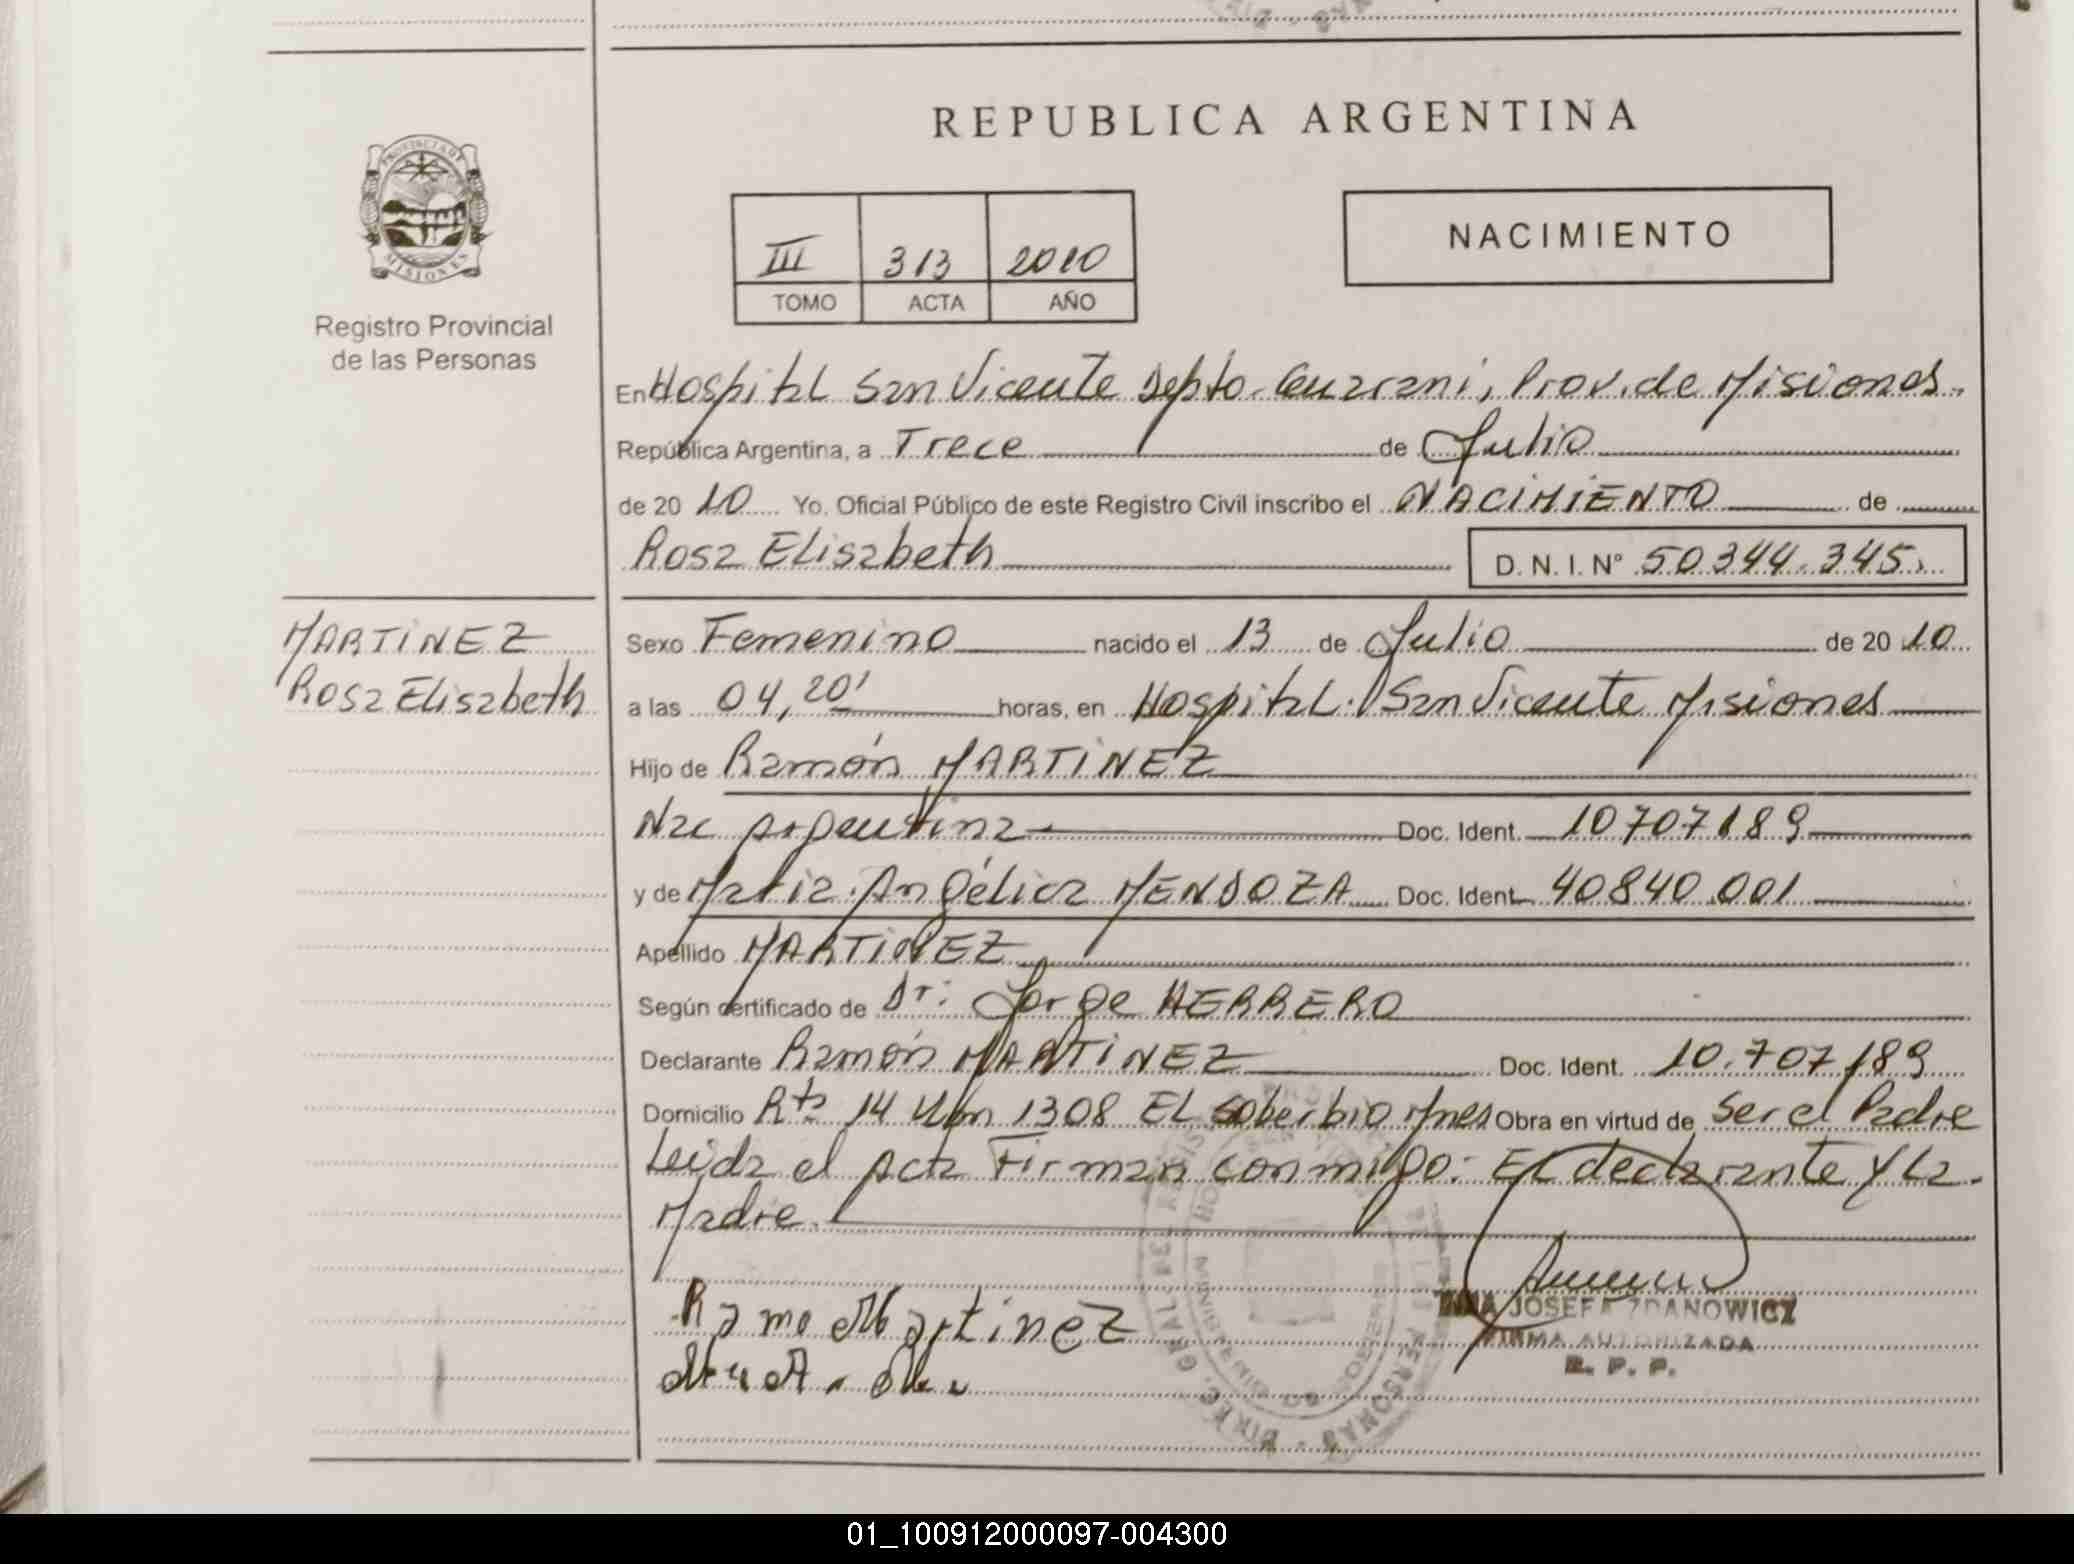 REPUBLICA ARGENTINA
PROVINCIA DE
MISIONES
Registro Provincial
de las Personas
III 313 2010
TOMO ACTA AÑO
NACIMIENTO
En Hospital San Vicente Depto. Guarani, Prov. de Misiones.
República Argentina, a Trece de Julio
de 20 10 Yo, Oficial Público de este Registro Civil inscribo el NACIMIENTO de
Rosa Elisabeth D. N. I. N° 50344.345.
MARTINEZ
Rosa Elisabeth
Sexo Femenino nacido el 13 de Julio de 20 10
a las 04,20' horas, en Hospital. San Vicente Misiones
Hijo de Ramón MARTINEZ
Nac Argentina Doc. Ident. 10707189
y de Maria Angélica MENDOZA Doc. Ident. 40840.001
Apellido MARTINEZ
Según certificado de Dr: Jorge HERRERO
Declarante Ramón MARTINEZ Doc. Ident. 10.707189
Domicilio Rta 14 Km 1308 El Soberbio Mnes Obra en virtud de Ser el Padre
Leida el Acta Firman conmigo: El declarante y La
Madre.
Ramo Martinez
JOSEFA ZDANOWICZ
FIRMA AUTORIZADA
R. P. P.
01_100912000097-004300